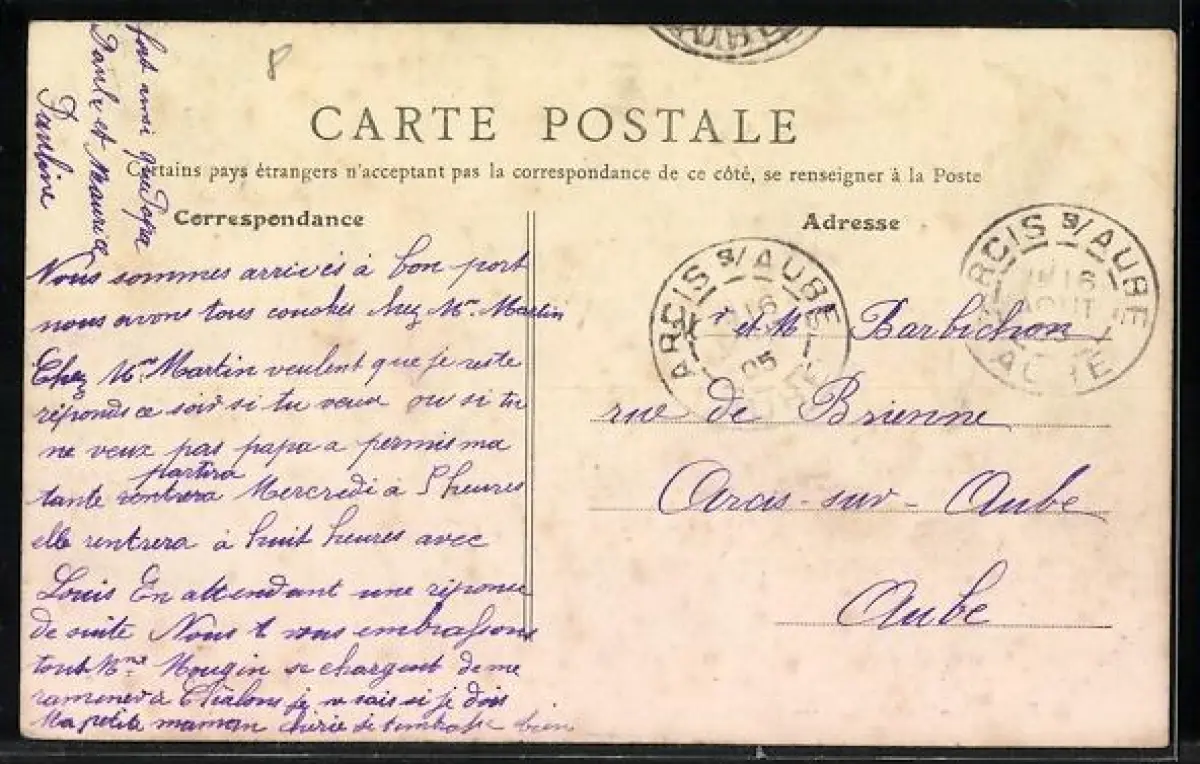 CARTE POSTALE
Certains pays étrangers n'acceptant pas la correspondance de ce côté, se renseigner à la Poste
Correspondance
Nous sommes arrivés à bon port
nous avons tous couchés chez Mr Martin
Chez Mr Martin veulent que je reste
réponds ce soir si tu veux ou si tu
ne veux pas papa a permis ma
partira
tante rentrera Mercredi à 5 heures
elle rentrera à huit heures avec
Louis En attendant une réponse
de suite Nous t vous embrassons
tout Mme Mougin se chargent de me
ramener à Châlons je ne sais si je dois
Ma petite maman chérie je t'embrasse bien
fort ainsi que Papa
Paule et Maurice
Adresse
r et M Barbichon
rue de Brienne
Arcis-sur-Aube
Aube
ARCIS S/ AUBE
16
05
ARCIS S/ AUBE
16
AOUT
AUBE
8